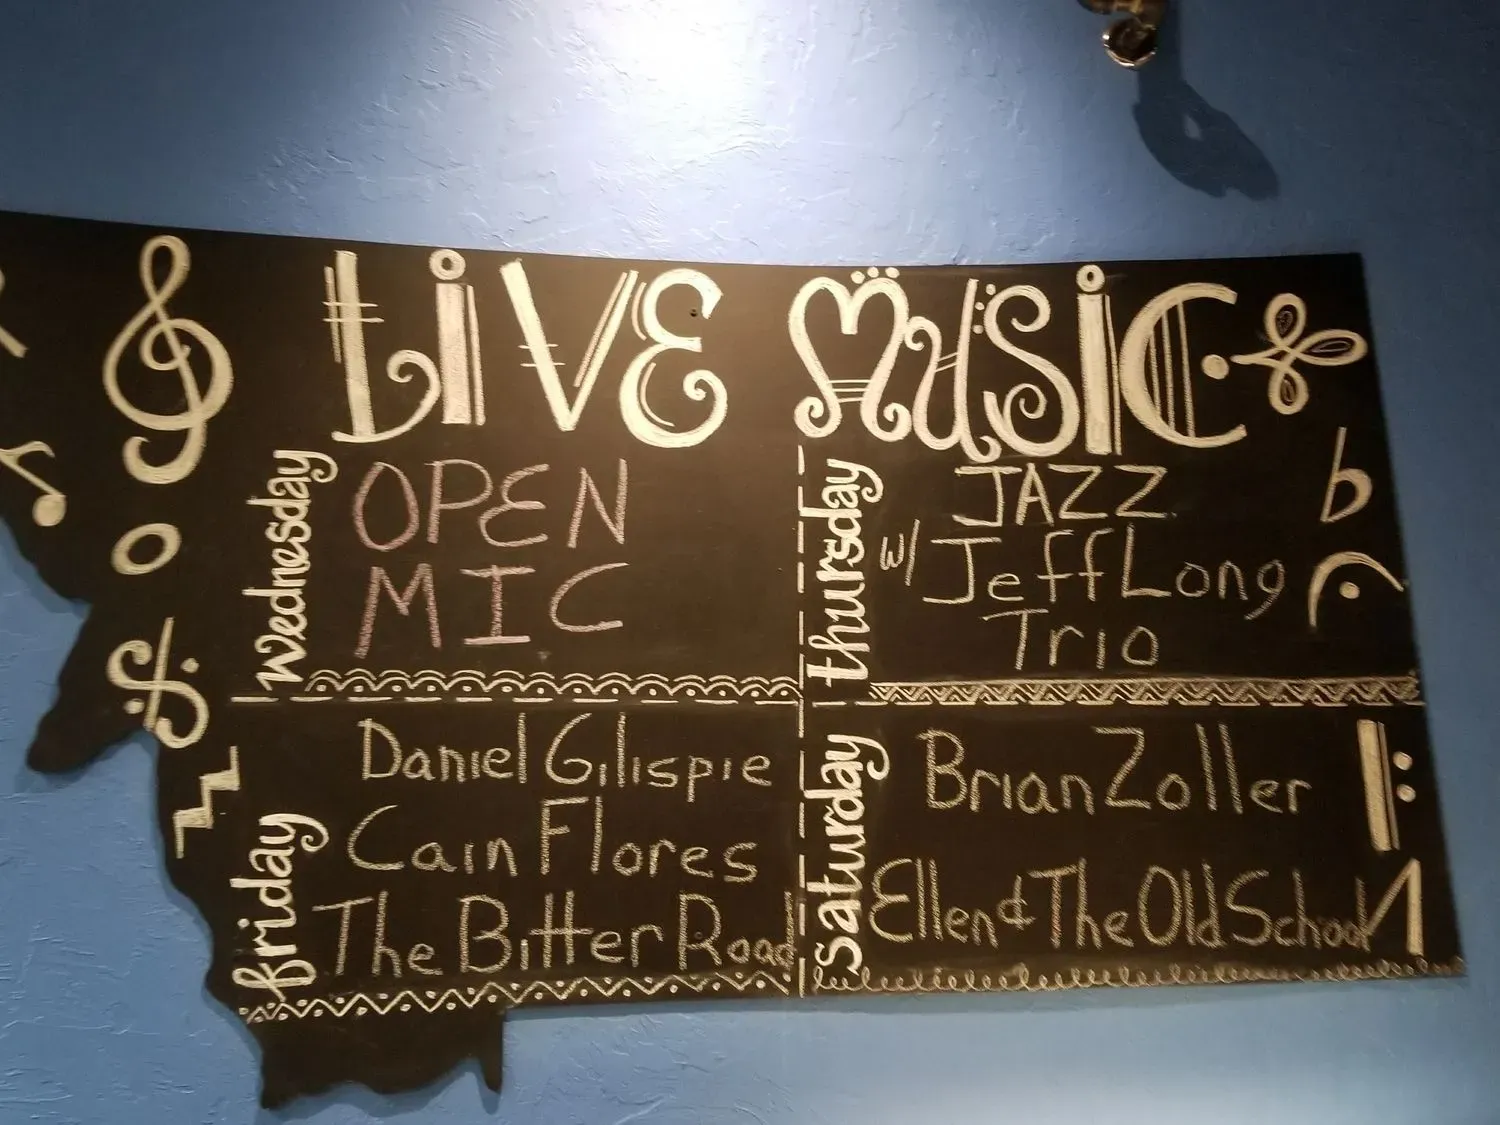 LIVE MUSIC
Wednesday
OPEN
MIC
thursday
JAZZ
w/ Jeff Long
Trio
friday
Daniel Gilispie
Cain Flores
The Bitter Road
saturday
Brian Zoller
Ellen & The Old School